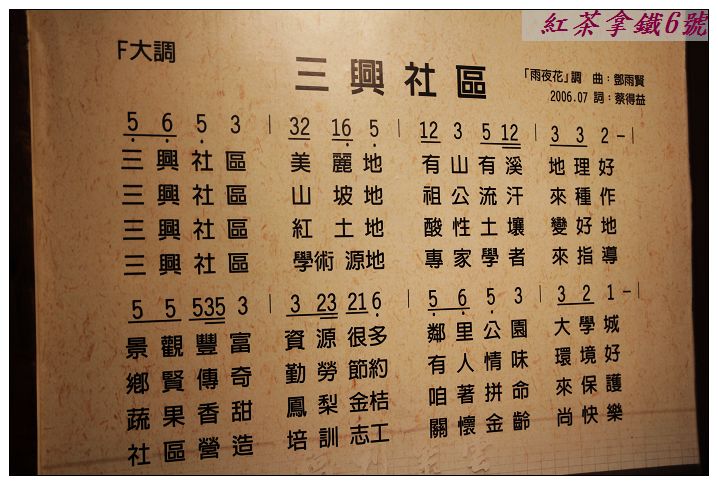 紅茶拿鐵6號
F大調
三興社區
「雨夜花」調 曲：鄧雨賢
2006.07 詞：蔡得益
5 6 5 3 | 32 16 5 | 12 3 5 12 | 3 3 2 - |
三興社區 美麗地 有山有溪 地理好
三興社區 山坡地 祖公流汗 來種作
三興社區 紅土地 酸性土壤 變好地
三興社區 學術源地 專家學者 來指導
5 5 535 3 | 3 23 21 6 | 5 6 5 3 | 3 2 1 - |
景觀豐富 資源很多 鄰里公園 大學城
鄉賢傳奇 勤勞節約 有人情味 環境好
蔬果香甜 鳳梨金桔 咱著拼命 來保護
社區營造 培訓志工 關懷金齡 尚快樂